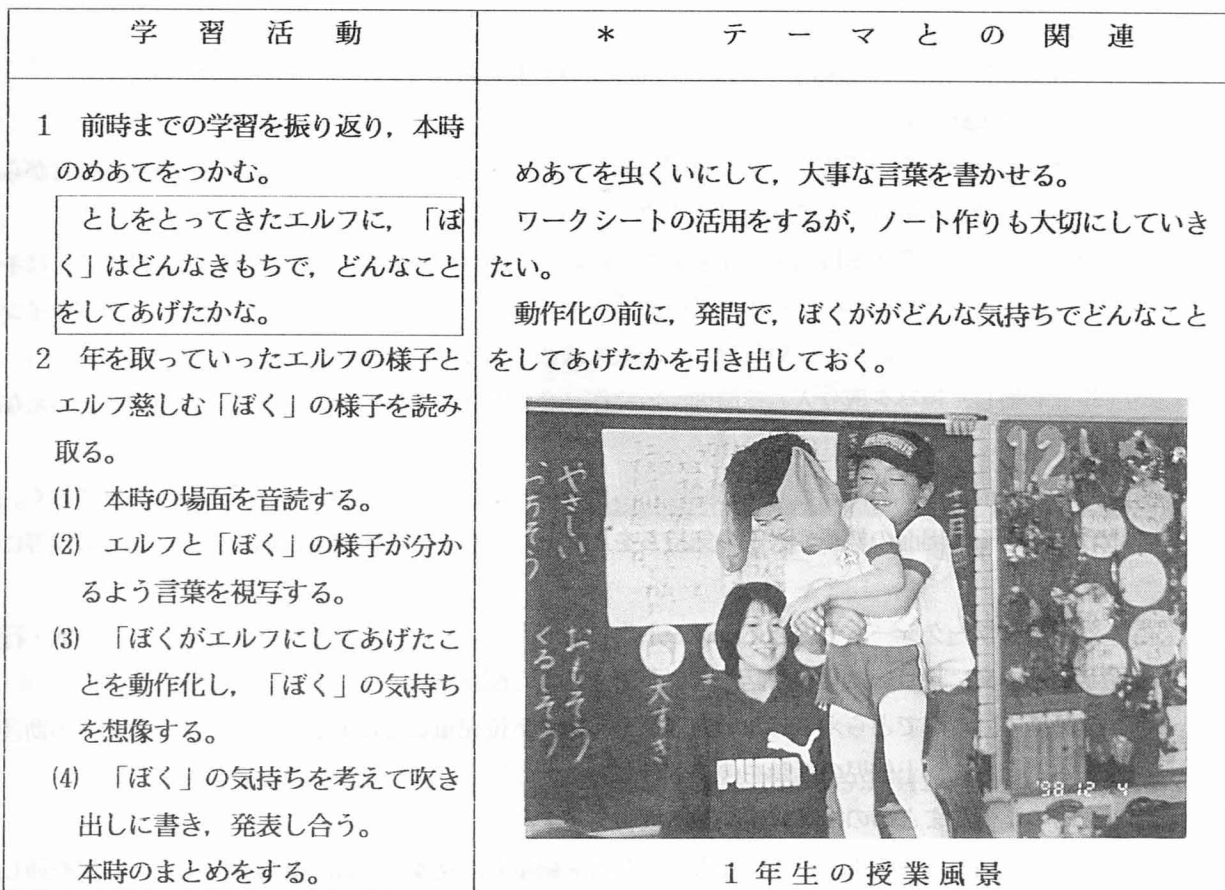 学習活動
＊ テーマとの関連
1 前時までの学習を振り返り，本時
のめあてをつかむ。
としをとってきたエルフに，「ぼ
く」はどんなきもちで，どんなこと
をしてあげたかな。
2 年を取っていったエルフの様子と
エルフ慈しむ「ぼく」の様子を読み
取る。
(1) 本時の場面を音読する。
(2) エルフと「ぼく」の様子が分か
るよう言葉を視写する。
(3) 「ぼくがエルフにしてあげたこ
とを動作化し，「ぼく」の気持ち
を想像する。
(4) 「ぼく」の気持ちを考えて吹き
出しに書き，発表し合う。
本時のまとめをする。
めあてを虫くいにして，大事な言葉を書かせる。
ワークシートの活用をするが，ノート作りも大切にしていき
たい。
動作化の前に，発問で，ぼくががどんな気持ちでどんなこと
をしてあげたかを引き出しておく。
やさしい
おもそう
くるしそう
大すき
12
PUMA
'98 12 4
1年生の授業風景